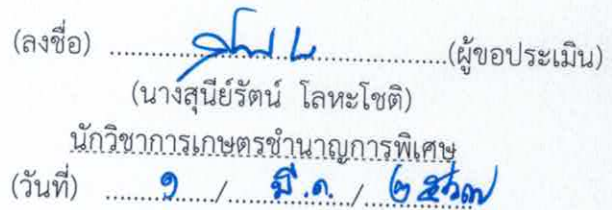 (ลงชื่อ) ..........................................(ผู้ขอประเมิน)
(นางสุนีย์รัตน์ โลหะโชติ)
นักวิชาการเกษตรชำนาญการพิเศษ
(วันที่) ........๑....../....มี.ค..../..๒๕๖๗